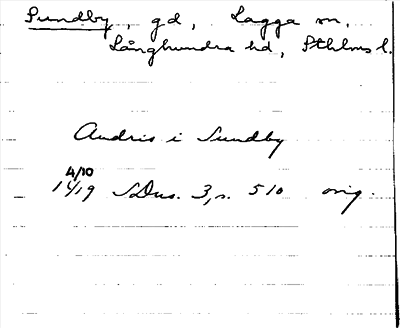 Sundby, gd, Lagga sn,
Långhundra hd, Sthlms l.
Andris i Sundby
4/10
1419 SDns. 3, s. 510 orig.